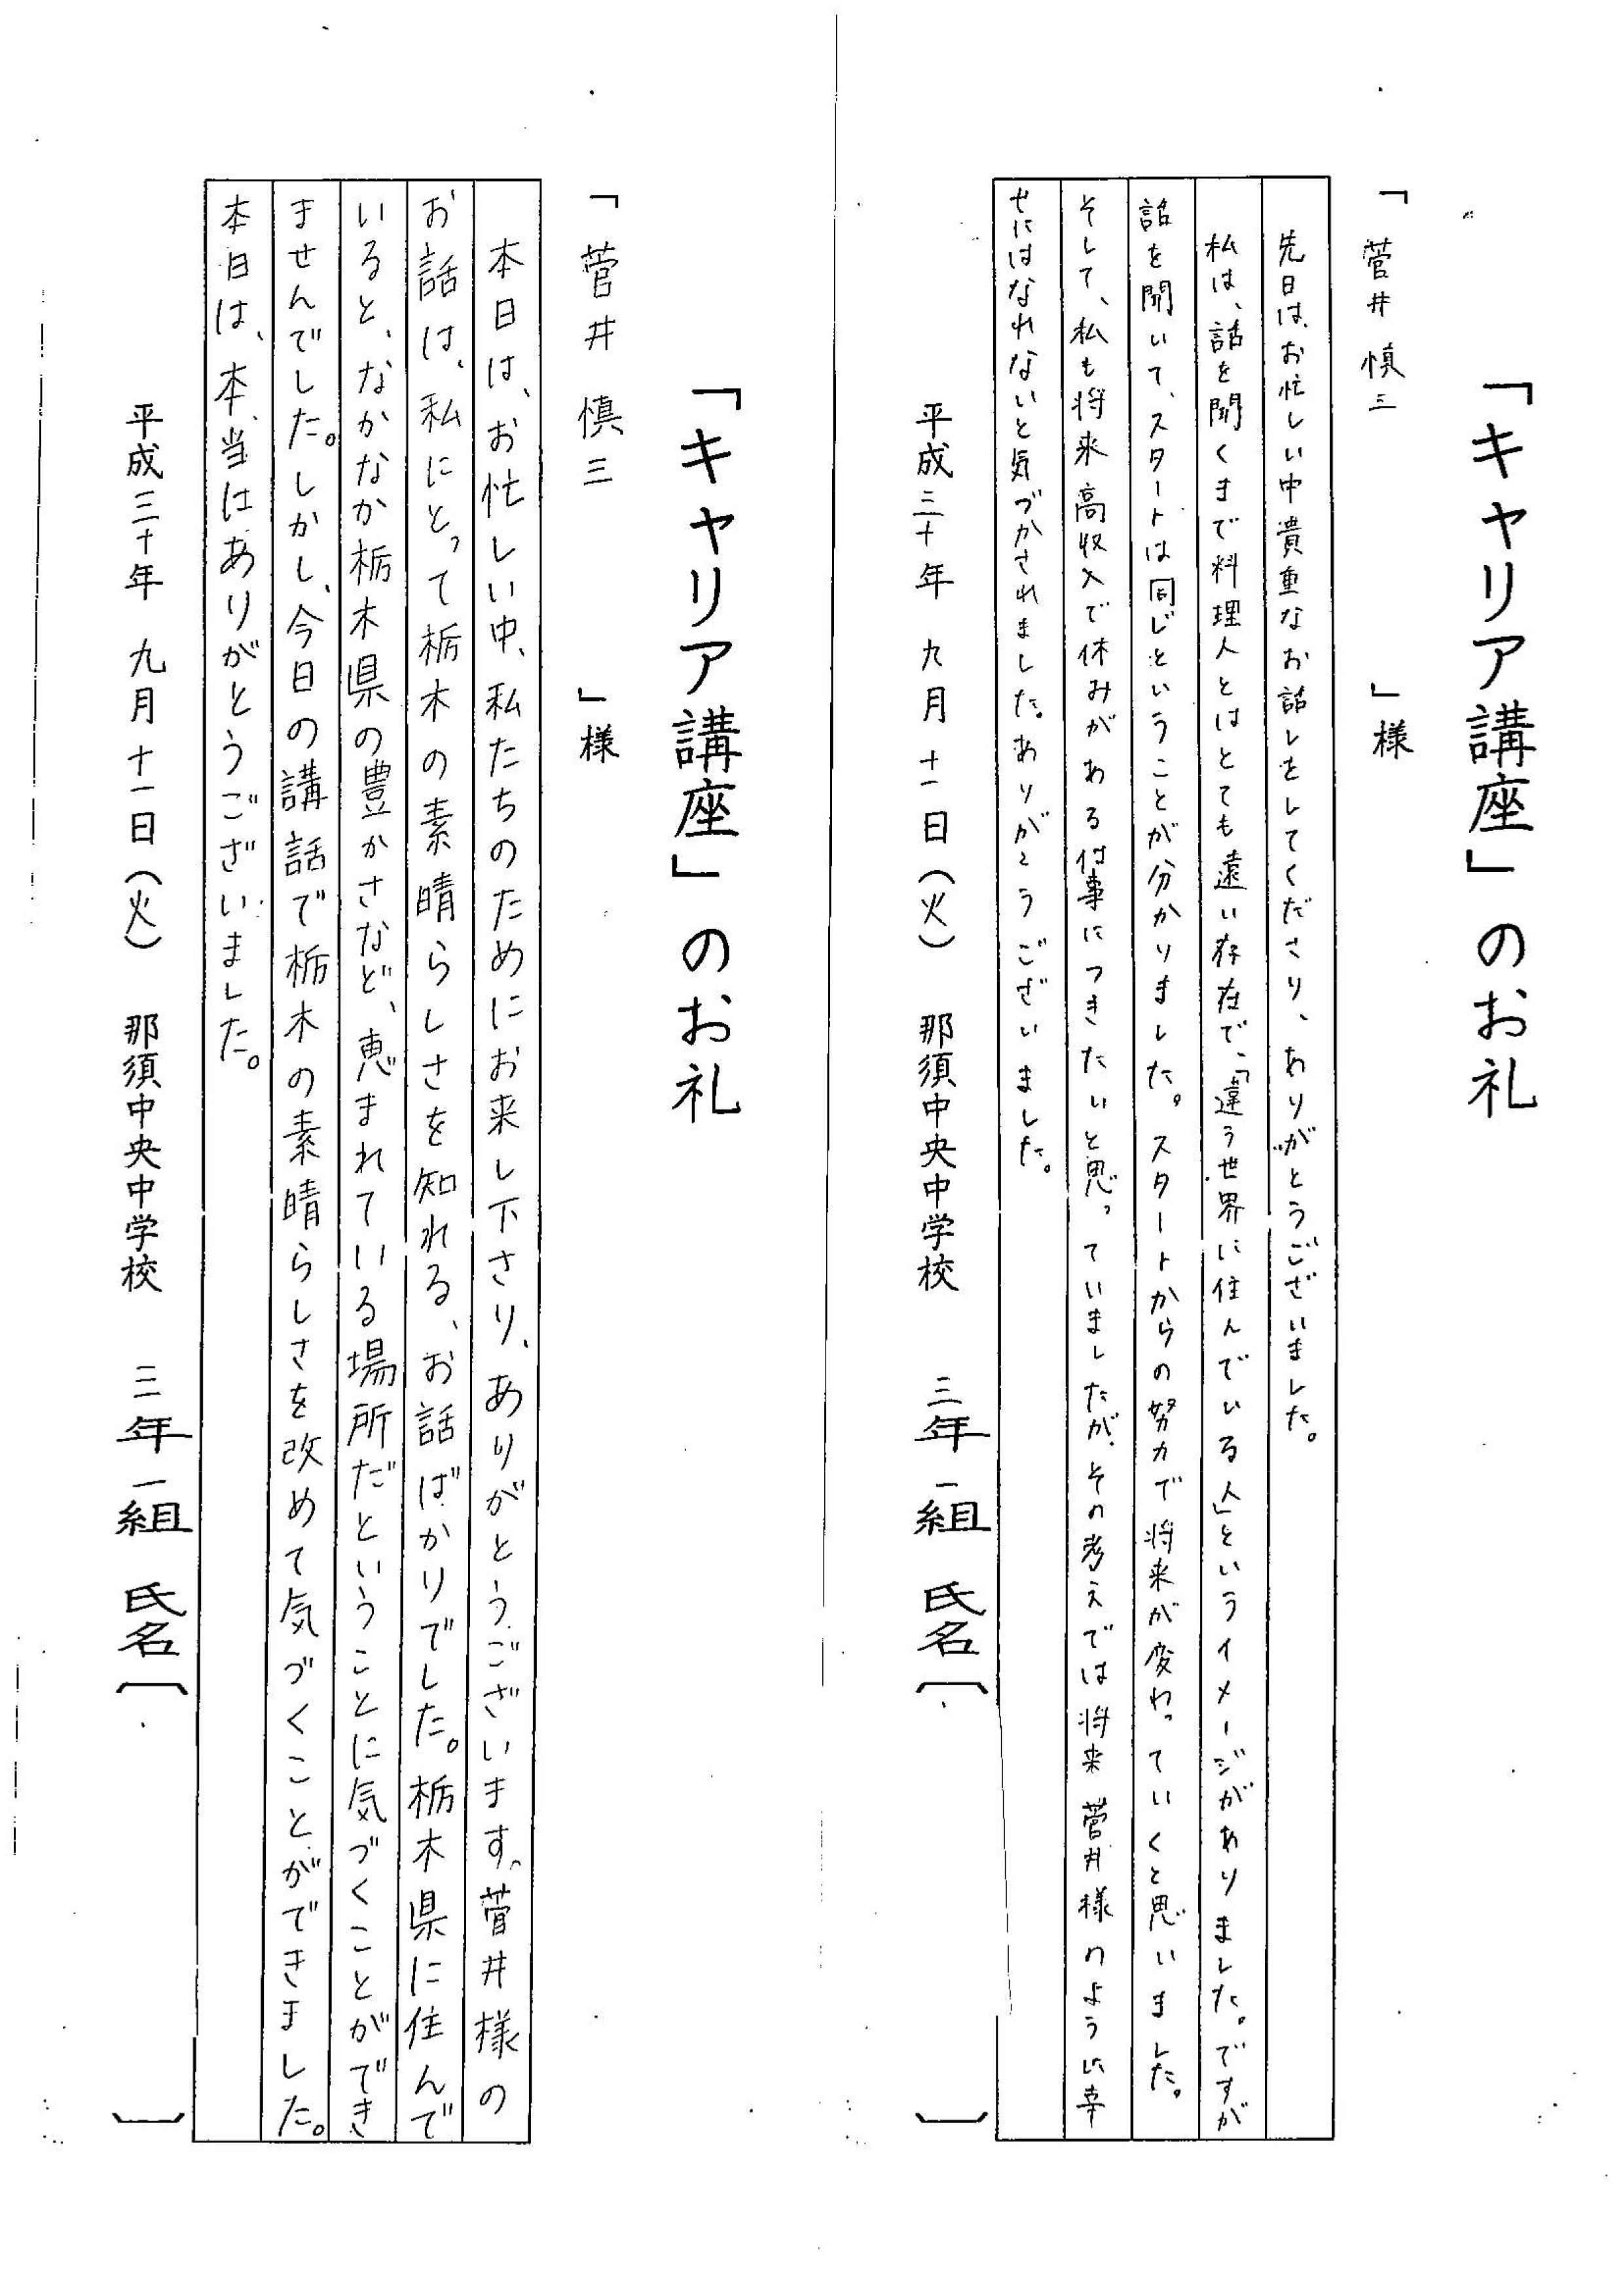 「キャリア講座」のお礼
「菅井 慎三 」様
先日は、お忙しい中貴重なお話しをしてくださり、ありがとうございました。
私は、話を聞くまで料理人とはとても遠い存在で、「違う世界に住んでいる人」というイメージがありました。ですが
話を聞いて、スタートは同じということが分かりました。スタートからの努力で将来が変わっていくと思いました。
そして、私も将来高収入で休みがある仕事につきたいと思っていましたが、その考えでは将来菅井様のように幸
せにはなれないと気づかされました。ありがとうございました。
平成三十年 九月十一日(火) 那須中央中学校 三年一組 氏名〔 〕
「キャリア講座」のお礼
「菅井 慎三 」様
本日は、お忙しい中、私たちのためにお来し下さり、ありがとうございます。菅井様の
お話は、私にとって栃木の素晴らしさを知れる、お話ばかりでした。栃木県に住んで
いると、なかなか栃木県の豊かさなど、恵まれている場所だということに気づくことができ
ませんでした。しかし、今日の講話で栃木の素晴らしさを改めて気づくことができました。
本日は、本当にありがとうございました。
平成三十年 九月十一日(火) 那須中央中学校 三年一組 氏名〔 〕